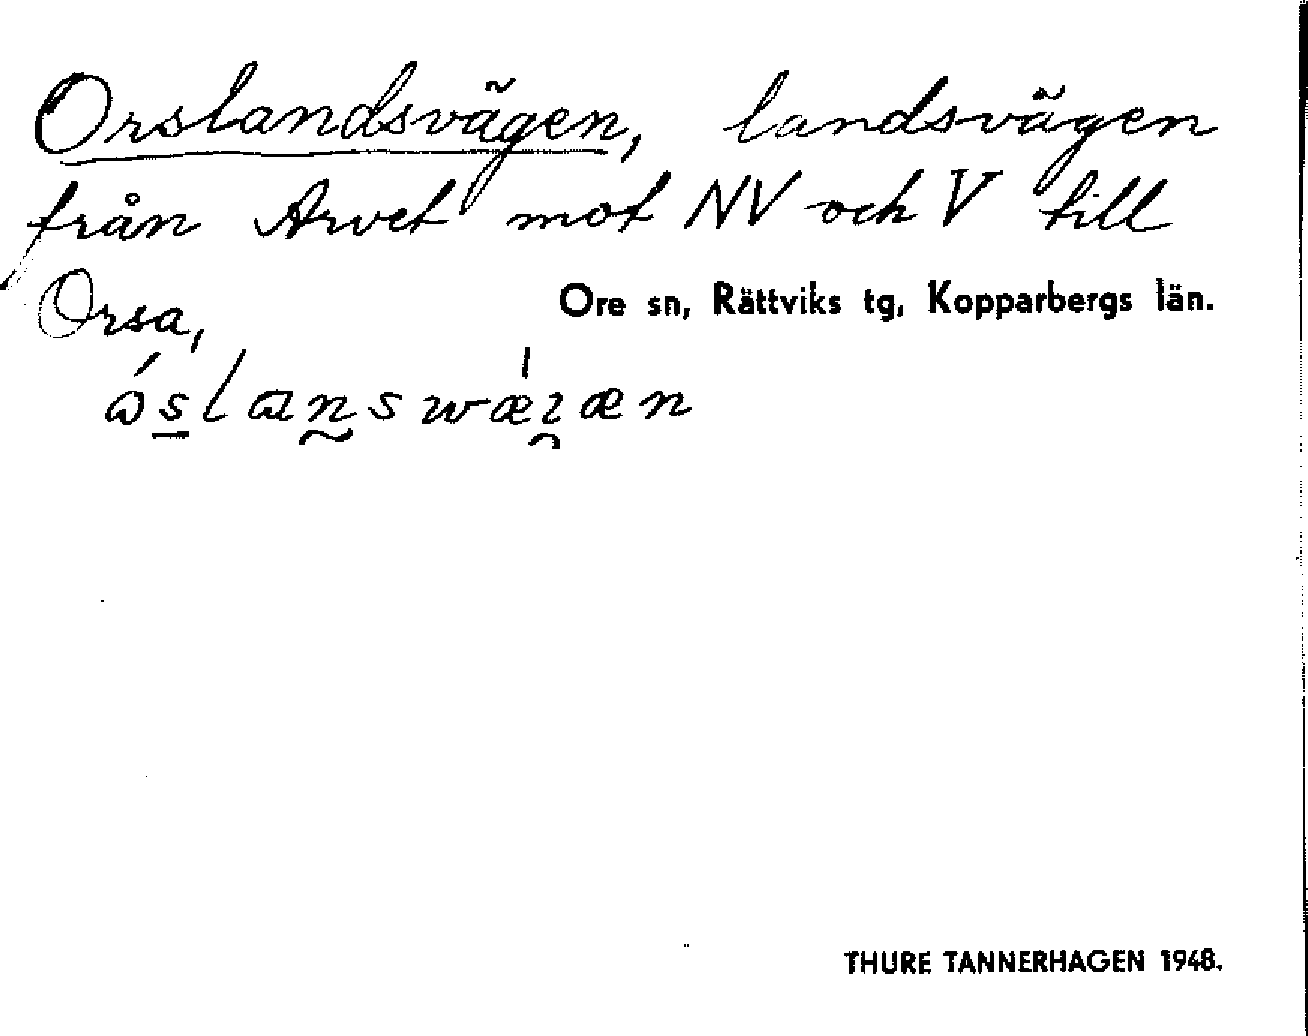 Orslandsvägen, landsvägen
från Arvet mot NV och V till
Orsa,
Ore sn, Rättviks tg, Kopparbergs län.
THURE TANNERHAGEN 1948.